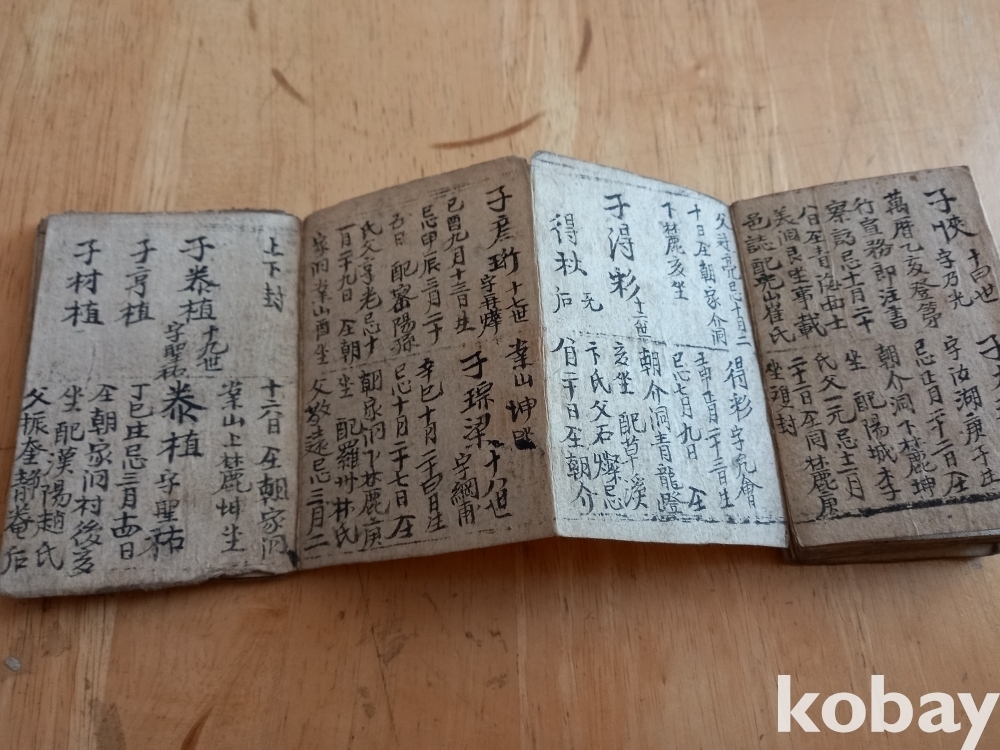 子悏 十四世
字乃光
萬曆乙亥登第
行宣務郎注書
察訪忌十一月二十
八日
美洞艮坐事載
邑誌配完山崔氏
字汝湖庚子生
忌十一月二十二日
朝介洞下麓坤
坐 配陽城李
氏父一元忌十二月
二十二日 同麓庚
坐雙封
忌十月二
十日 朝家介洞
下麓亥坐
子得彩 十六世
得秋 无后
得彩
二十三日生
忌七月九日
朝介洞青龍嶝
亥坐 配草溪
卞氏父石燦忌
八月二十日 朝介
子彦珩 十七世
己酉九月十三日生
忌甲辰三月二十
五日 配密陽孫
氏父亨老忌十
一月二十九日 朝
家洞 山酉坐
山坤坐
子琮梁 十八世
字綱甫
辛巳十月二十四日生
忌十月二十七日
朝家洞下麓庚
坐 配羅州林氏
父致遠忌三月二
上下封
子泰植 十九世
字聖祐
子亨植
子材植
十六日 朝家洞
山上麓坤坐
泰植 字聖祐
丁巳生忌三月十四日
朝家洞村後亥
坐 配漢陽趙氏
父振奎靜菴后
kobay